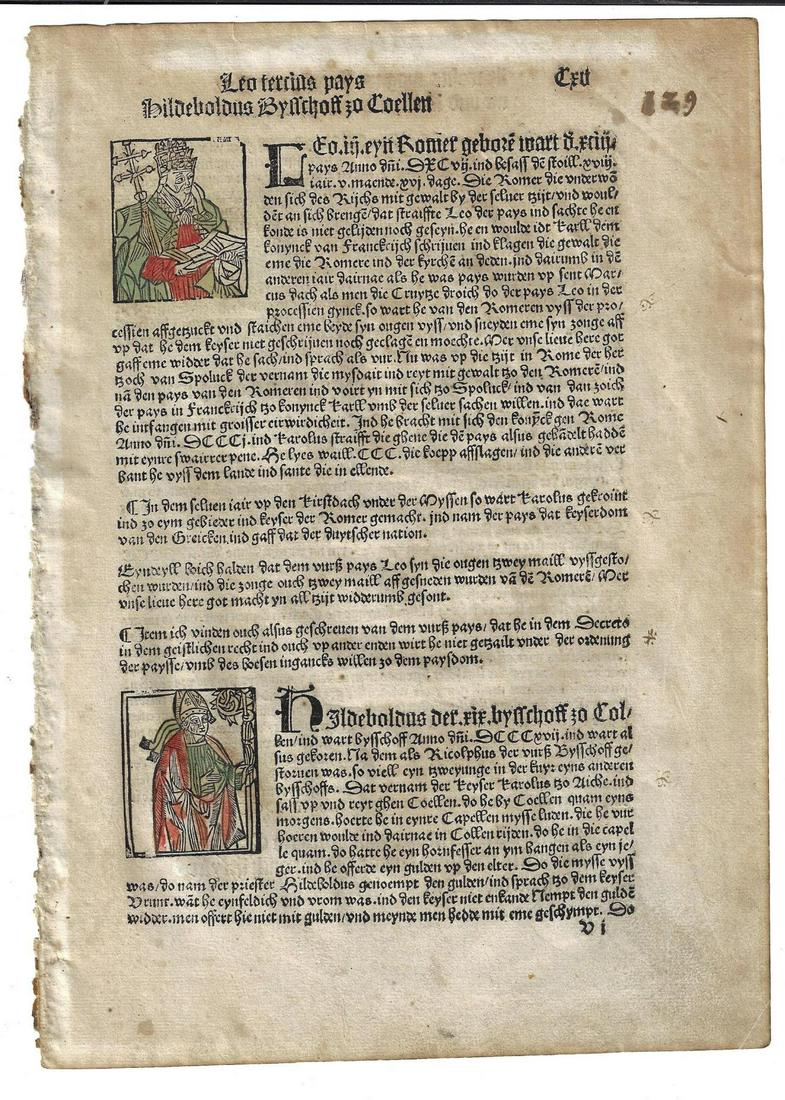 Leo tercius pays
Cxv
Hildeboldus Bysschoff zo Coellen
129
LEo.iij.eyn Romer geborē wart d.xciij.
pays Anno dñi. DXCvij.ind besass dē stoill.xviij.
iair.v.maende.xvj.dage. Die Romer die vnderwō
den sich des Rijchs mit gewalt by der seluer tzijt/vnd woul/
dēt an sich brengē/dat straiffte Leo der pays ind sachte he en
konde is niet gelijden noch geseyn.he en woulde idt Karll dem
konynck van Franckrijch schrijuen ind klagen die gewalt die
eme die Romere ind der kyrchē an deden.ind dairumb in dē
anderen iair dairnae als he was pays wurden vp sent Mar/
cus dach als men die Cruytze droich do der pays Leo in der
processien gynck.so wart he van den Romeren vyss der pro/
cessien affgetzuckt vnd staichen eme beyde syn ougen vyss/vnd sneyden eme syn zonge aff
vp dat he dem keyser niet geschrijuen noch geclagen en moechte. Mer vnse lieue here got
gaff eme widder dat he sach/ind sprach als vur. Nu was vp die tzijt in Rome der her
tzoch van Spoluck der vernam die mysdait ind reyt mit gewalt tzo den Romerē/ind
nā den pays van den Romeren ind voirt yn mit sich tzo Spoluck/ind van dan zoich
der pays in Franckrijch tzo konynck Karll vmb der seluer sachen willen.ind dae wart
he intfangen mit groisser eirwirdicheit. Ind he bracht mit sich den konyck gen Rome
Anno dñi. DCCCj.ind Karolus straifft die ghene die dē pays alsus gehādelt haddē
mit eynre swairrer pene. He lyes waill.CCC.die koepp affslagen/ind die anderē ver
bant he vyss dem lande ind sante die in ellende.
¶ In dem seluen iair vp den Kirstdach vnder der Myssen so wart Karolus gekroint
ind zo eym gebieder ind keyser der Romer gemacht. ind nam der pays dat keyserdom
van den Greicken.ind gaff dat der duytscher nation.
Eyndeyll boich halden dat dem vurß pays Leo syn die ougen tzwey maill vyssgesto/
chen wurden/ind die zonge ouch tzwey maill affgesneden wurden vā dē Romerē/Mer
vnse lieue here got macht yn all tzijt widderumb gesont.
¶ Item ich vinden ouch alsus geschreuen van dem vurß pays/dat he in dem Decrets
in dem geistlichen recht ind ouch vp ander enden wirt he niet getzailt vnder der ordenung
der paysse/vmb des boesen ingancks willen zo dem paysdom.
HIldeboldus der.xix.bysschoff zo Col/
len/ind wart bysschoff Anno dñi. DCCCxvij.ind wart al
sus gekoren. Na dem als Ricolphus der vurß Bysschoff ge/
storuen was.so viell eyn tzweyunge in der kuyr eyns anderen
bysschoffs. Dat vernam der Keyser Karolus tzo Aiche.ind
sass vp vnd reyt ghen Coellen.do he by Coellen quam eyns
morgens.hoerte he in eynre Capellen mysse luden.die he vur
hoeren woulde ind dairnae in Collen rijden.do he in die capel
le quam.do hatte he eyn hornfesser an ym hangen als eyn je/
ger.ind he offerde eyn gulden vp den elter. Do die mysse vyss
was/do nam der priester Hildeboldus genoempt den gulden/ind sprach tzo dem keyser
Vrunt.wāt he eynfeldich vnd vrom was.ind den keyser niet enkande Nempt den guldē
widder.men offert hie niet mit gulden/vnd meynde men hedde mit eme geschympt. Do
v i